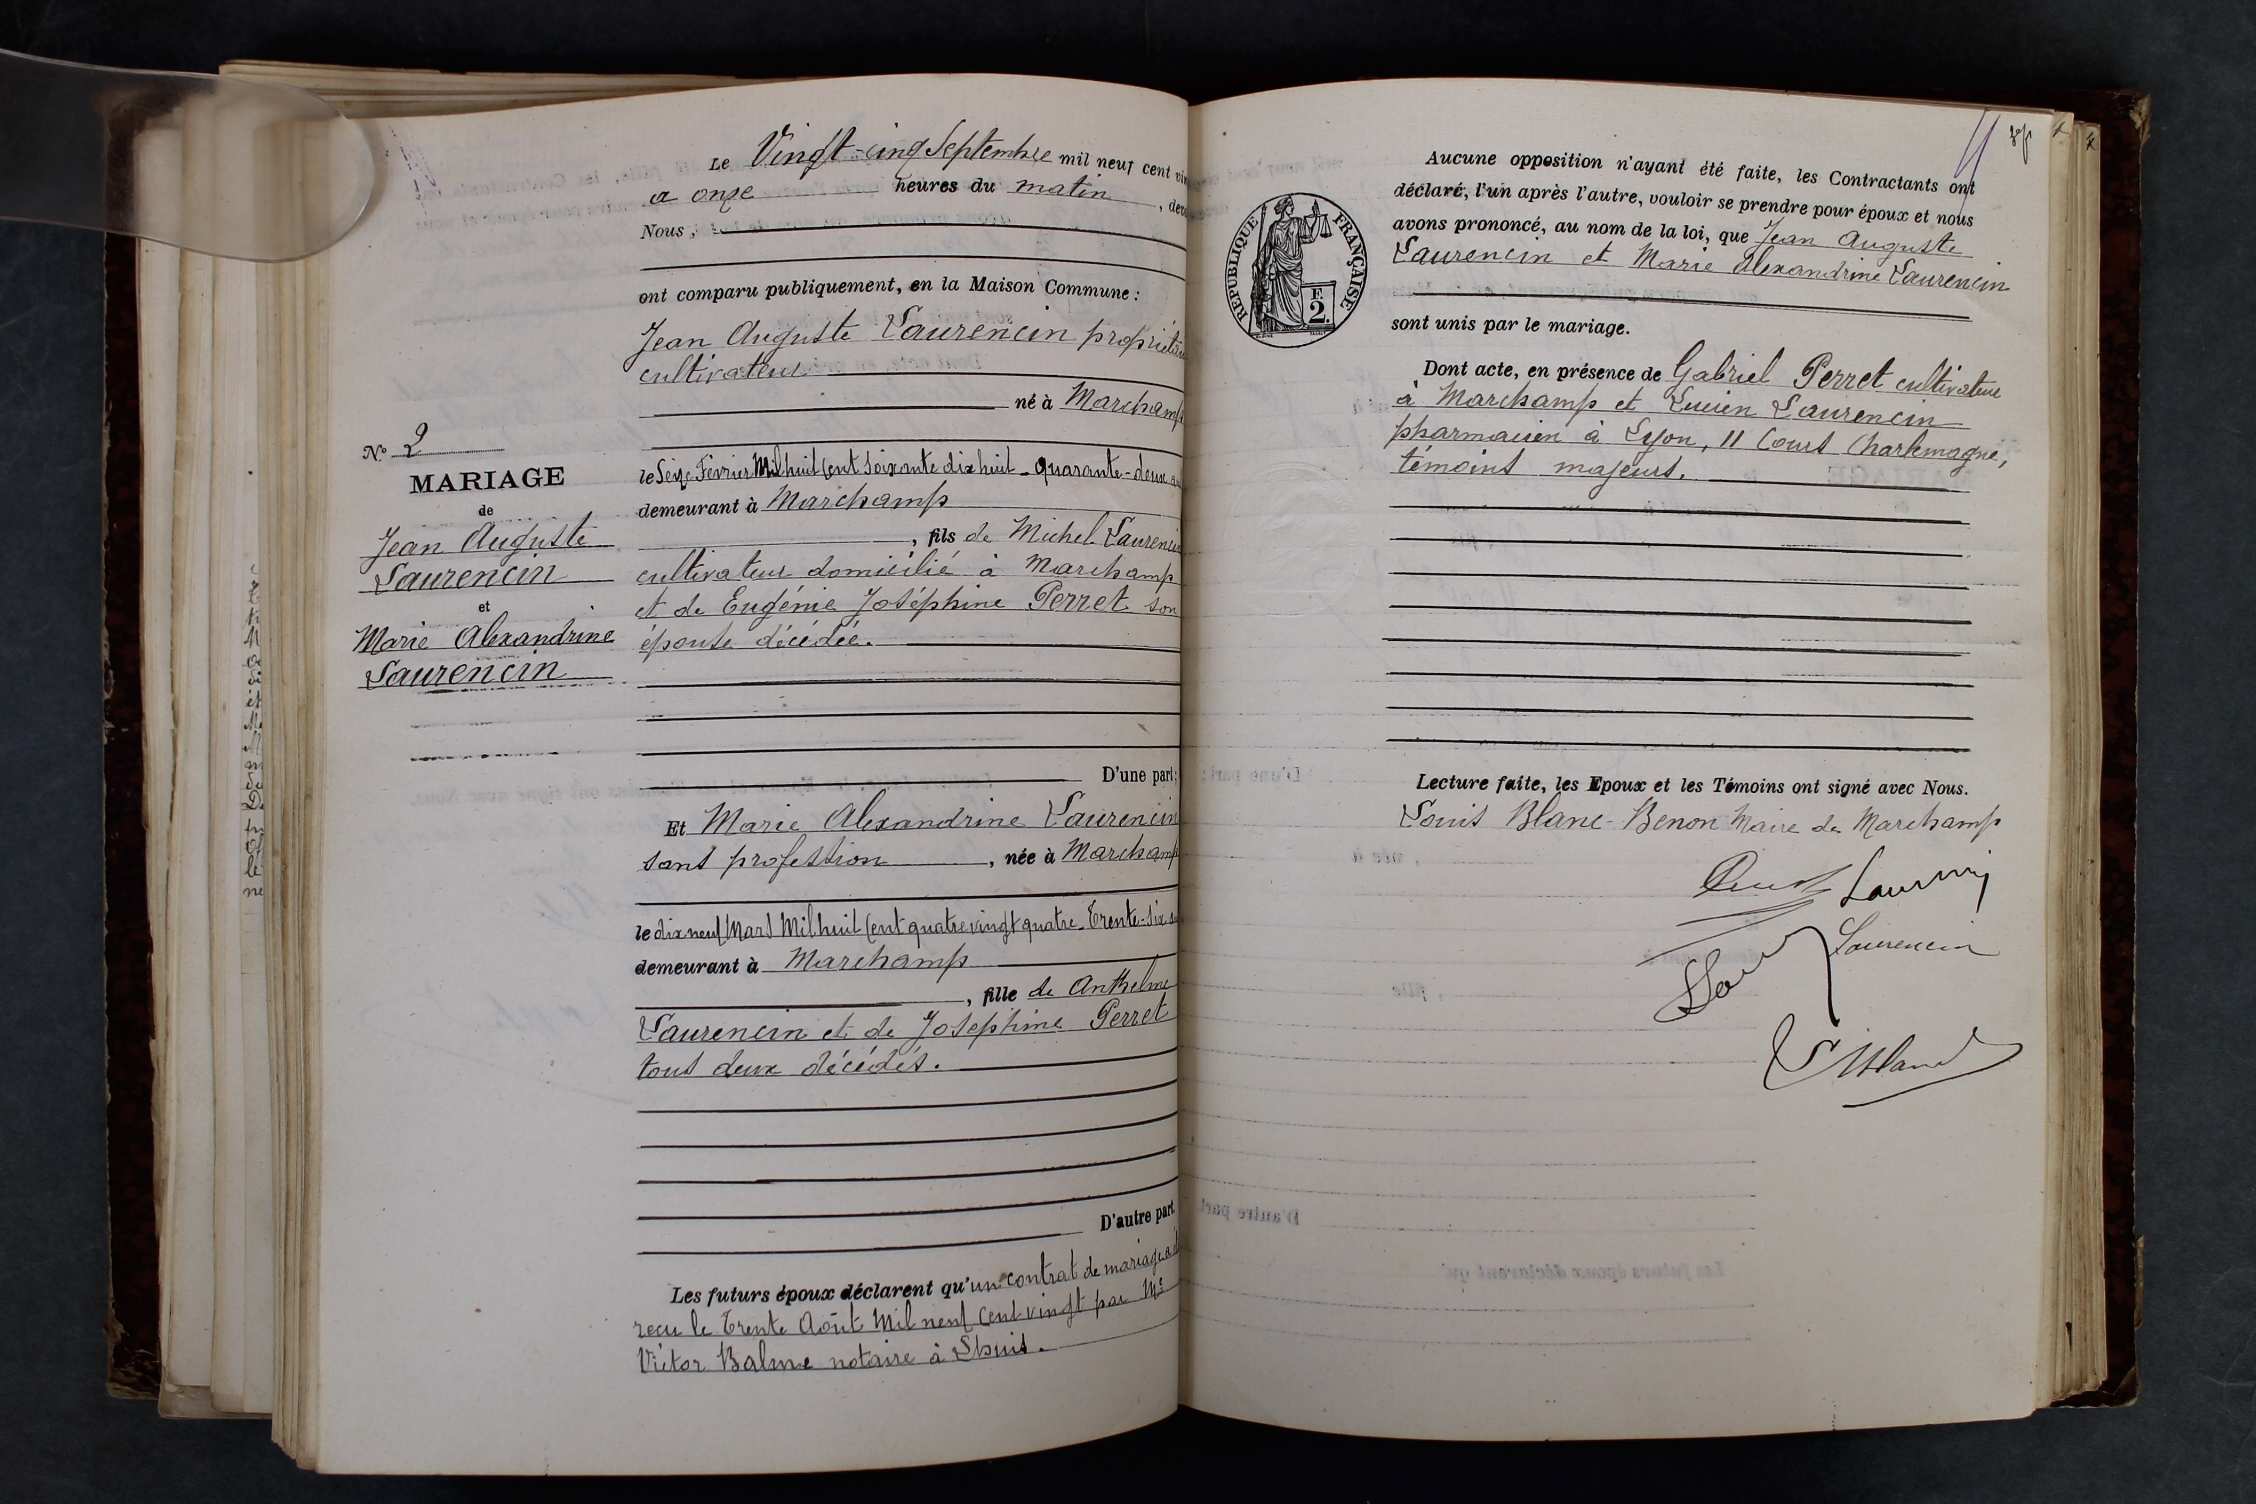 Le Vingt-cinq Septembre mil neuf cent
a onze heures du matin
Nous,
ont comparu publiquement, en la Maison Commune :
Jean Auguste Laurencin
cultivateur
né à Marchamp
N° 2
MARIAGE
de
Jean Auguste
Laurencin
et
Marie Alexandrine
Laurencin
le Seize Février Mil huit Cent Soixante dix huit - quarante-deux
demeurant à Marchamp
, fils de Michel Laurencin
cultivateur domicilié à Marchamp
et de Eugénie Joséphine Perret son
épouse décédée.
D'une part ;
Et Marie Alexandrine Laurencin
sans profession, née à Marchamp
le dix neuf Mars Mil huit Cent quatre vingt quatre - Trente-six
demeurant à Marchamp
, fille de Anthelme
Laurencin et de Joséphine Perret
tous deux décédés.
D'autre part
Les futurs époux déclarent qu'un contrat de mariage a
reçu le Trente Août Mil neuf Cent vingt par Me
Victor Balme notaire à Lhuis.
Aucune opposition n'ayant été faite, les Contractants ont
déclaré, l'un après l'autre, vouloir se prendre pour époux et nous
avons prononcé, au nom de la loi, que Jean Auguste
Laurencin et Marie Alexandrine Laurencin
REPUBLIQUE FRANÇAISE
F.
2.
sont unis par le mariage.
Dont acte, en présence de Gabriel Perret cultivateur
à Marchamp et Lucien Laurencin
pharmacien à Lyon, 11 Cours Charlemagne,
témoins majeurs.
Lecture faite, les Epoux et les Témoins ont signé avec Nous.
Louis Blanc-Benon Maire de Marchamp
Laurencin
L Blanc